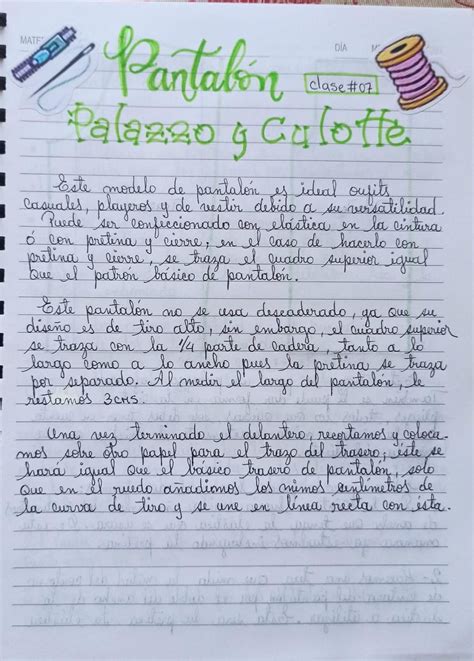 MATE
DÍA
M
Pantalón
clase #07
Palazzo y Culotte
Este modelo de pantalón es ideal oufits
casuales, playeros y de vestir debido a su versatilidad.
Puede ser confeccionado con elástica en la cintura
ó con pretina y cierre, en el caso de hacerlo con
pretina y cierre, se traza el cuadro superior igual
que el patrón básico de pantalón.
Este pantalón no se usa deseaderado, ya que su
diseño es de tiro alto, sin embargo, el cuadro superior
se traza con la 1/4 parte de cadera, tanto a lo
largo como a lo ancho pues la pretina se traza
por separado. Al medir el largo del pantalón, le
restamos 3cms.
Una vez terminado el delantero, recortamos y coloca-
mos sobre otro papel para el trazo del trasero; éste se
hará igual que el básico trasero de pantalón, solo
que en el ruedo añadimos los mimos centímetros de
la curva de tiro y se une en línea recta con ésta.